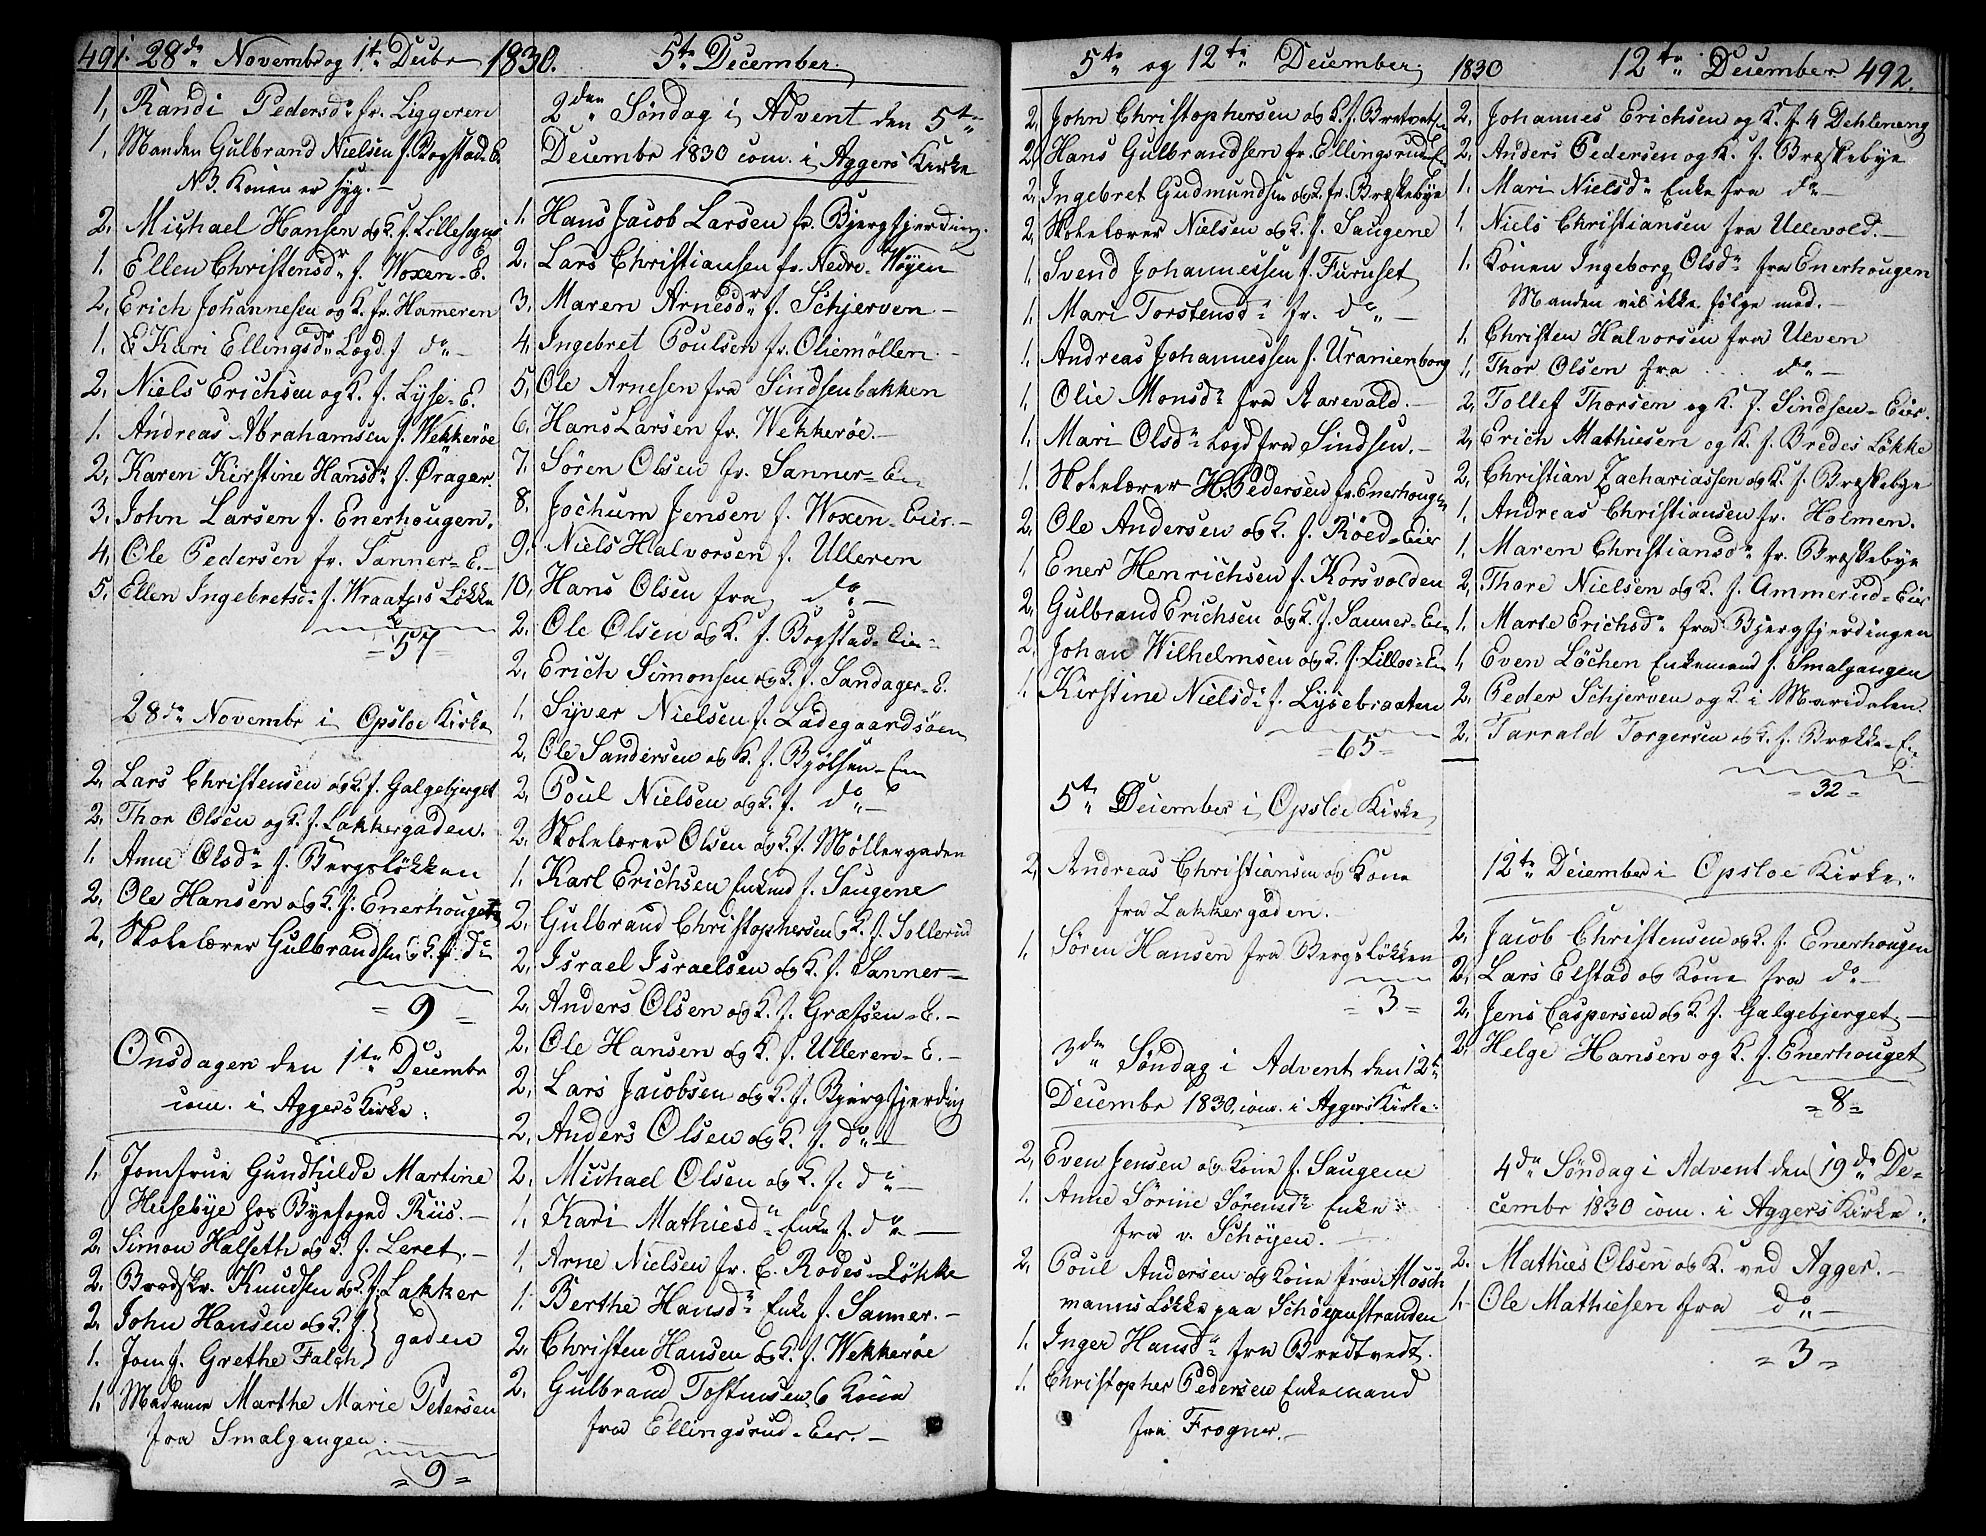 491. 28de Novembr og 1te Decbr 1830. 5te December.
1, Randi Pedersdr fr. Liggeren
1, Manden Gulbrand Nielsen f. Bogstad-E.
NB. Konen er syg.-
2, Michael Hansen og K. f. Lillesogns
1. Ellen Christensdr f. Woxen-E.
2, Erich Johannesen og K. fr. Hameren
1. Kari Ellingsdr Logd. f do-
2, Niels Erichsen og K. f. Lyse-E.
1. Andreas Abrahamsen f. Wekkerøe
2, Karen Kirstine Hansdr f. Ørager
3. John Larsen f. Enerhougen.
4, Ole Pedersen fr. Sanner-E.-
5, Ellen Ingebretsdr f. Wraatzes Løkke
=57=
28de Novembr i Opsloe Kirke
2, Lars Christensen og K. f. Galgebjerget
2. Thor Olsen og K. f. Lakkergaden.
1. Anne Olsdr f. Bergsløkken
2, Ole Hansen og K. f. Enerhouget
2, Skolelærer Gulbrandsen og K. f. do
=9=
Onsdagen den 1te Decembr
com. i Aggers Kirke:
1. Jomfrue Gundhilde Martine
Husebye hos Byefoged Riis.-
2. Simon Halseth og K. f. Leret.-
2. Brodskr. Knudsen og K. f. Lakker
2. John Hansen og K. f. gaden
1. Jomf. Grethe Falch
1. Madame Marthe Marie Petersen
fra Smalgangen
=9=
2den Søndag i Advent den 5te
Decembr 1830 com. i Aggers Kirke
1. Hans Jacob Larsen fr. Bjergfjerding.
2. Lars Christiansen fr. Nedre-Wøyen
3. Maren Arnesdr f. Schjerven-
4. Ingebret Poulsen fr. Oliemöllen.-
5, Ole Arnesen fra Sindsenbakken
6. Hans Larsen fr. Wekkerøe.-
7. Sören Olsen fr. Sanner-Ei
8. Jochum Jensen f. Woxen-Eier.-
9. Niels Halvorsen f. Ulleren
10, Hans Olsen fra do-
2. Ole Olsen og K. f. Bogstad-Eie-
2. Erich Simonsen og K. f. Sandager-E.
1. Syver Nielsen f. Ladegaardsøen
2, Ole Sandersen og K. f. Bjølsen-Een
2, Poul Nielsen og K. f. do-
2. Skolelærer Olsen og K. f. Møllergaden
1. Karl Erichsen Enkmd f. Saugene
2. Gulbrand Christophersen og K. f. Sollerud
2, Israel Israelsen og K. f. Sanner-
2, Anders Olsen og K. f. Græfsen-E.-
2. Ole Hansen og K. f. Ulleren-E.-
2, Lars Jacobsen og K. f. Bjergfjerding
2, Anders Olsen og K. f. do-
2. Michael Olsen og K. f. do-
1. Kari Mathiesdr Enke f. do-
1, Arne Nielsen fr. E. Rodes-Løkke
1. Berthe Hansdr Enke f. Sanner.-
2. Christen Hansen og K. f. Wekkerøe
2. Gulbrand Tostensen og Kone
fra Ellingsrud-Eier.-
5te og 12te December. 1830 12te December 492.
2, John Christophersen og K. f. Bretvet
2, Hans Gulbrandsen fr. Ellingsrud-E.
2, Ingebret Gudmundsen og K. fr. Breskebye
2, Skolelærer Nielsen og K. f. Saugene
1. Svend Johannessen f. Furuset
1. Mari Torstensdr fr. do-
1. Andreas Johannessen f. Uranienborg
1. Olie Monsdr fra Aarevald.-
1. Mari Olsdr Logd fra Sindsen.-
1. Skolelærer H. Pedersen fr. Enerhougn
2. Ole Andersen og K. f. Røed-Eier
1 Ener Henrichsen f. Korsvolden
2. Gulbrand Erichsen og K. f. Sanner-Een
2. Johan Wilhelmsen og K. f. Lilloe-E
1. Kirstine Nielsdr f. Lysebraaten
=65=
5te December i Opsloe Kirke
2, Andreas Christiansen og Kone
fra Lakkergaden.
1. Søren Hansen fra Bergsløkken
=3=
3die Søndag i Advent den 12te
Decembr 1830, com. i Aggers Kirke:
2, Even Jensen og Kone f. Saugene
1. Anne Sörine Sörensdr Enke
fra v. Schöyen.
2. Poul Andersen og Kone fra Mosch
manns Løkke paa Schøienstranden
1. Inger Hansdr fra Bredtvedt.
1. Christopher Pedersen Enkemand
fra Frogner.-
2, Johannes Erichsen og K. f. 4 Dehleneng
2, Anders Pedersen og K. f. Breskebye
1. Mari Nielsdr Enke fra do-
1. Niels Christiansen fra Ullevold.-
1. Konen Ingeborg Olsdr fra Enerhougen
Manden vil ikke følge med.-
1. Christen Halvorsen fra Ulven
1. Thor Olsen fra do-
2, Tollef Thorsen og K. f. Sindsen-Eier.
2, Erich Mathiesen og K. f. Bredes Løkke
2, Christian Zachariassen og K. f. Breskebye
1. Andreas Christiansen fr. Holmen.
1. Maren Christiansdr fr. Breskebye
2, Thore Nielsen og K. f. Ammerud-Eier
1. Marte Erichsdr fra Bjergfjerdingen
1, Even Löchen Enkemand f. Smalgangen
2. Peder Schjerven og K. i Maridalen.
2. Tarrald Torgersen og K. f. Brekke-E.
=32=
12te December i Opsloe Kirke.
2. Jacob Christensen og K. f. Enerhougen
2, Lars Elstad og Kone fra do-
2, Jens Caspersen og K. f. Galgebjerget-
2. Helge Hansen og K. f. Enerhouget
=8=
4de Søndag i Advent den 19de De-
cembr 1830 com. i Aggers Kirke:
2. Mathies Olsen og K. ved Agger.-
1. Ole Mathiesen fra do-
=3=